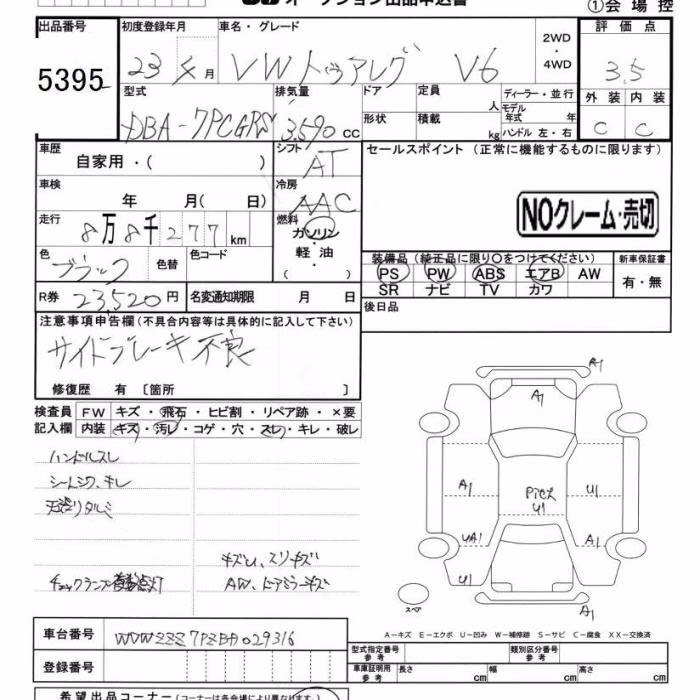 オークション出品申込書
①会場控
出品番号
5395
初度登録年月
23年4月
車名・グレード
VWトゥアレグ V6
2WD
・
4WD
評価点
3.5
外装 内装
C C
型式
DBA-7PCGRS
排気量
3,590 CC
ドア
形状
定員
人
積載
kg
ディーラー・並行
モデル年式 年
ハンドル 左・右
車歴
自家用・( )
シフト
AT
セールスポイント (正常に機能するものに限ります)
NOクレーム・売切
車検
年 月( 日)
冷房
AAC
走行
8万8千277km
燃料
ガソリン・
軽油・
( )
色
ブラック
色替
色コード
装備品 (純正品に限り○をつけてください)
PS PW ABS エアB AW
SR ナビ TV カワ
新車保証書
有・無
R券 23,520円
名変通知期限 月 日
後日品
注意事項申告欄(不具合内容等は具体的に記入して下さい)
サイドブレーキ不良
修復歴 有 〔箇所 〕
検査員
記入欄
FW キズ・飛石・ヒビ割・リペア跡・×要
内装 キズ・汚レ・コゲ・穴・スレ・キレ・破レ
ハンドルスレ
シートシワ、キレ
天張りタルミ
キズU、スリキズ
チェックランプ
AW、ドアミラーキズ
A1
A1
A1
Picス
U1
U1
UA1
A1
U1
A1
スペア
A-キズ E-エクボ U-凹み W-補修跡 S-サビ C-腐食 XX-交換済
車台番号
WVWZZZ7PZBD029316
登録番号
型式指定番号
参考
類別区分番号
参考
車庫証明用
参考
長さ cm
幅 cm
高さ cm
希望出品コーナー(コーナーは各会場により異なります)